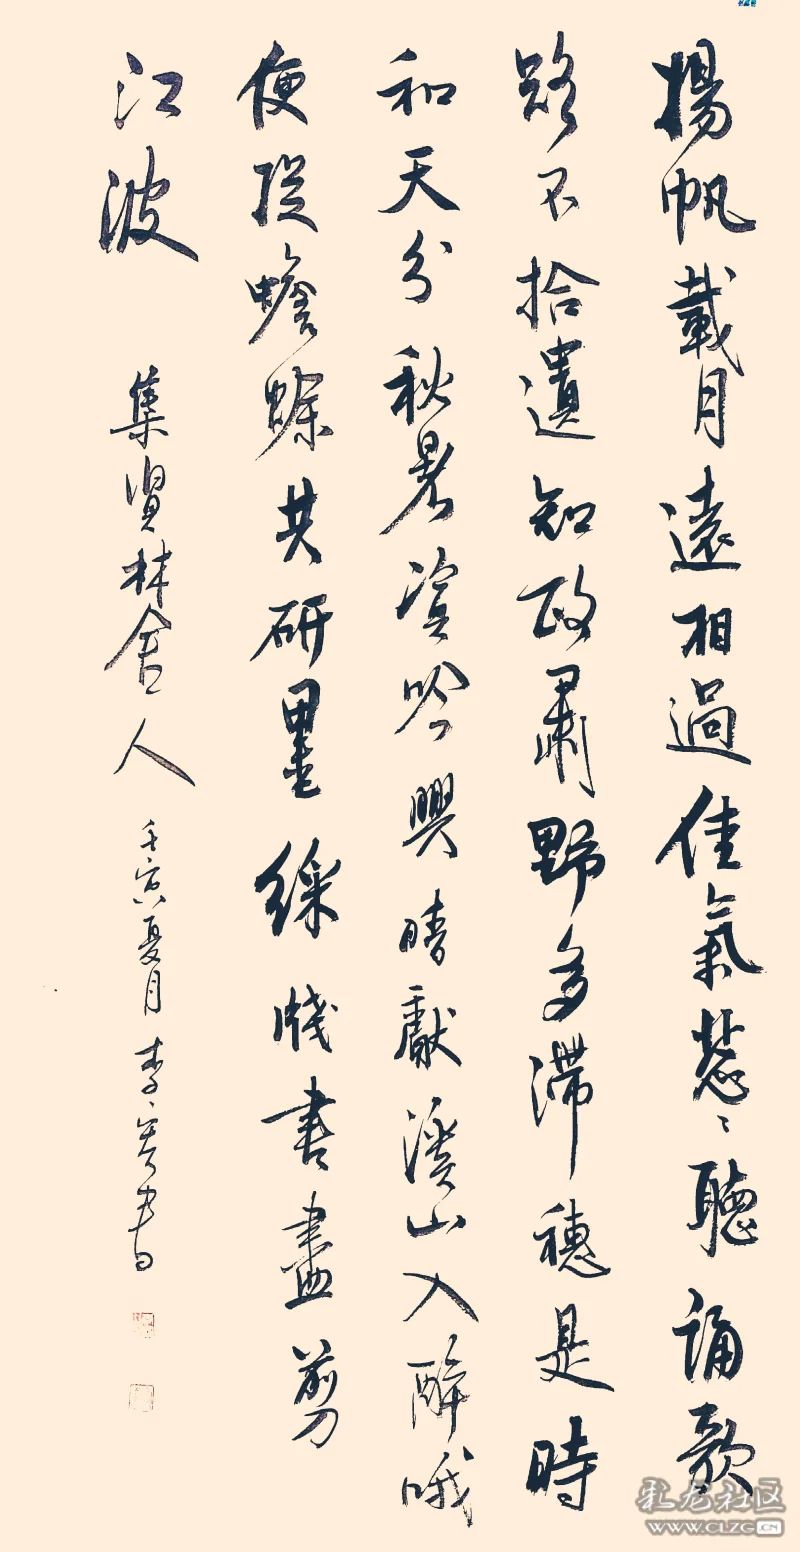 揚帆載月遠相過佳氣葱〻聽誦歌
路不拾遺知政肅野多滯穗是時
和天分秋暑資吟興晴獻溪山入醉哦
便捉蟾蜍共研墨綵牋書盡剪
江波 集賢林舍人 壬寅夏月 李 書
彩龙社区
WWW.CLZG.CN